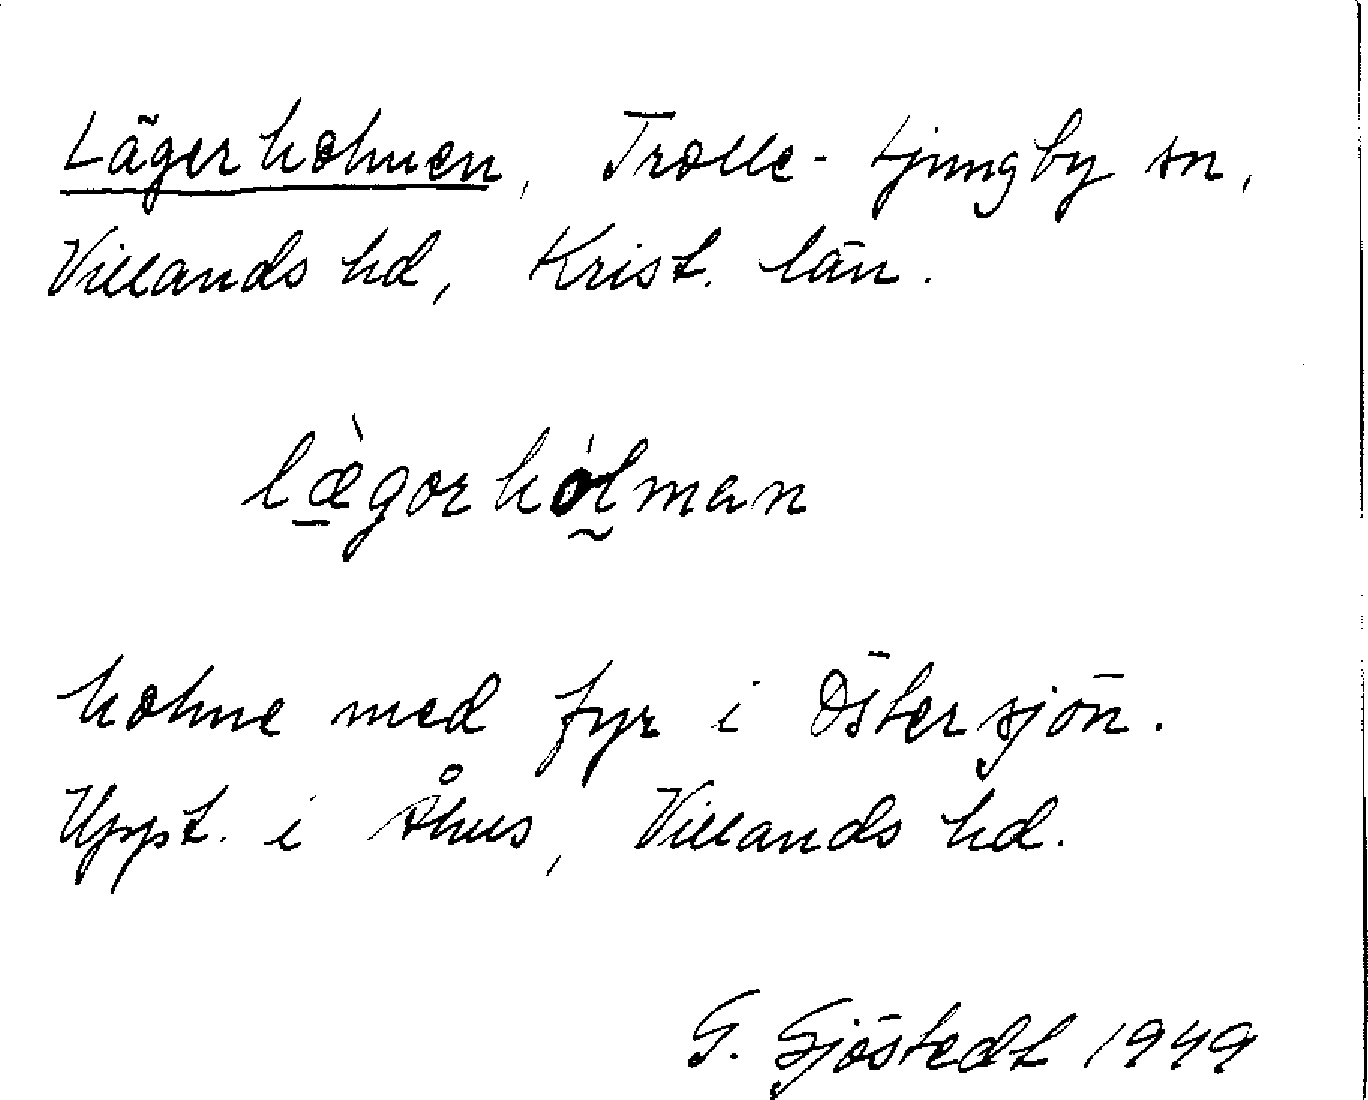 Lägerholmen, Trolle-Ljungby sn,
Villands hd, Krist. län.
læ̠̀gorhó̰lman
holme med fyr i Östersjön.
Uppt. i Åhus, Villands hd.
G. Sjöstedt 1949